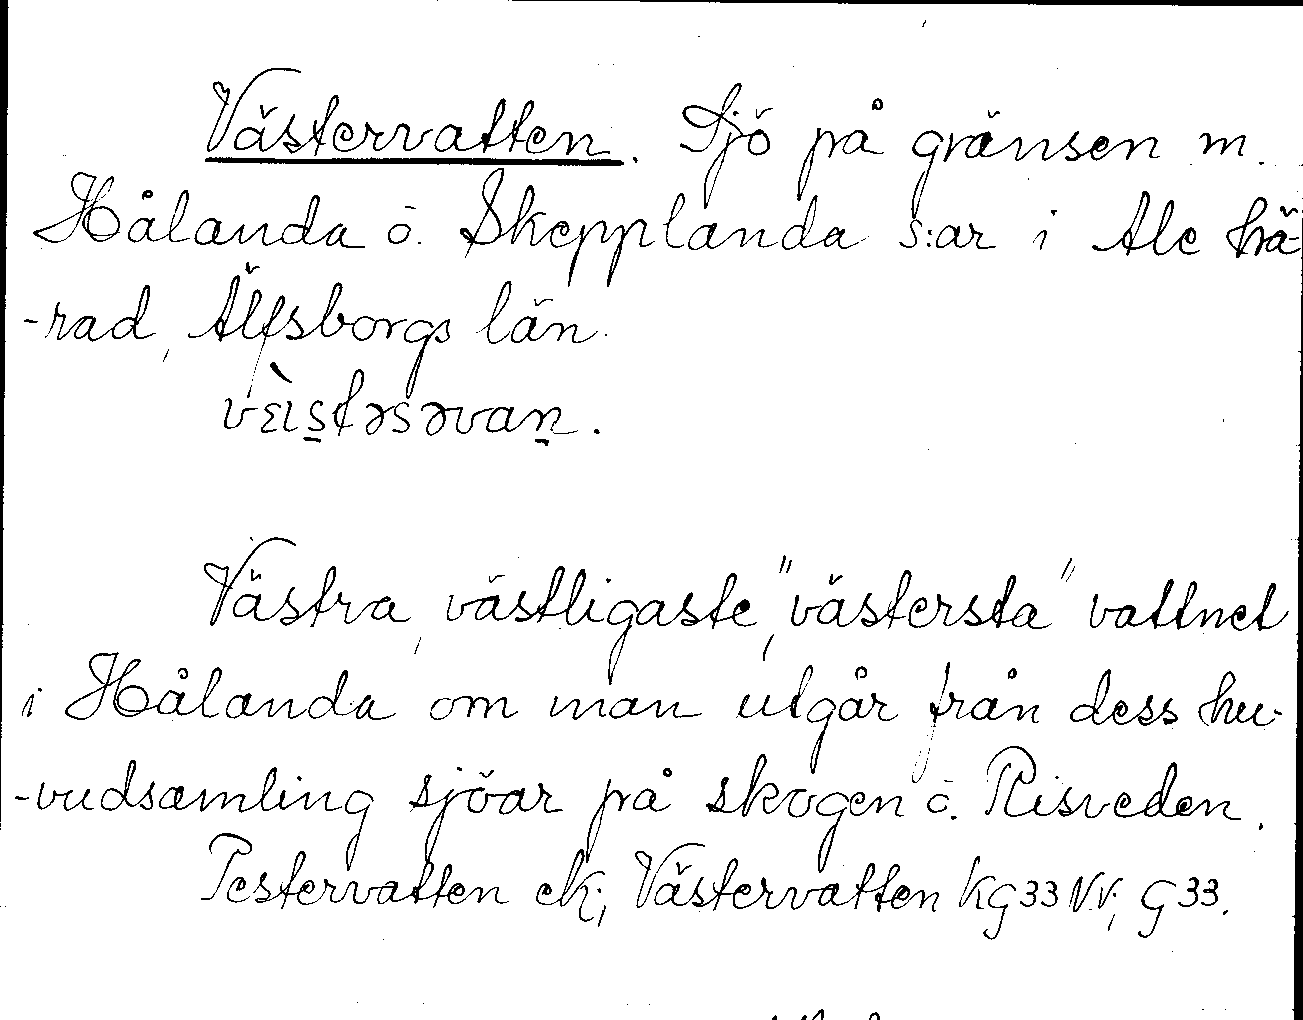 Västervatten. Sjö på gränsen m.
Hålanda o. Skepplanda s:ar i Ale hä-
-rad, Älfsborgs län.
vɛ̀ıs̠təsəvan̠.
Västra, västligaste, "västersta" vattnet
i Hålanda om man utgår från dess hu-
-vudsamling sjöar på skogen o. Risveden.
Pestervatten ek; Västervatten KG33NV; G33.